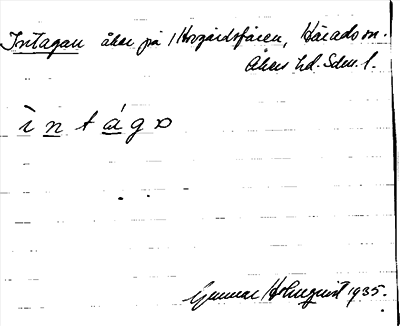 Intagan åker på Korgårdsfjären, Härads sn.
Åkers hd. Sdm. l.
ìntágo
Gunnar Holmquist 1935.